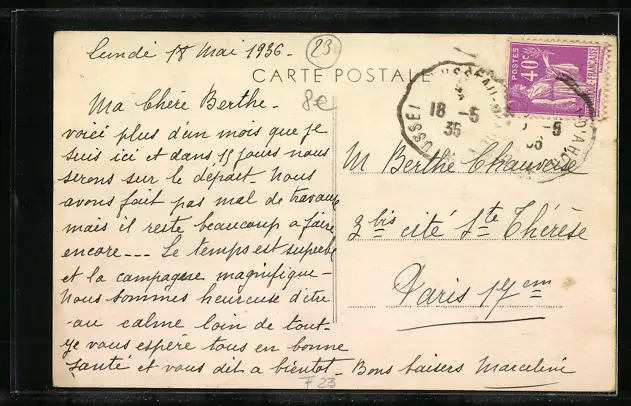 Lundi 18 Mai 1936-
23
CARTE POSTALE
8e
Ma Chère Berthe -
voici plus d'un mois que je
suis ici et dans 15 jours nous
serons sur le depart. Nous
avons fait pas mal de travaux
mais il reste beaucoup a faire
encore --- Le temps est superbe
et la campagne magnifique -
Nous sommes heureuse d'être
au calme loin de tout-
Je vous espère tous en bonne
santé et vous dit a bientot - Bons baisers Marceline
F 23
POSTES
40c
USSEL
18 -5
36
M Berthe Chauvoise
3bis cité Ste Thérèse
Paris 17em